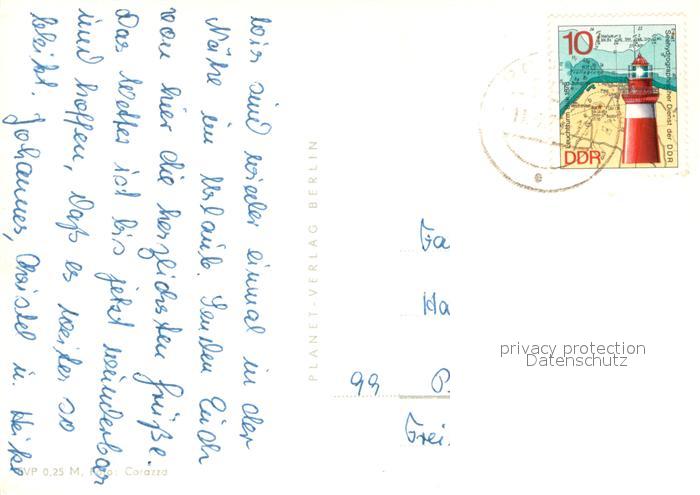 Wir sind wieder einmal in der
Nähe im Urlaub. Senden Euch
von hier die herzlichsten Grüße.
Das Wetter ist bis jetzt wunderbar
und hoffen, daß es weiter so
bleibt. Johannes, Christel u. Heike
PLANET-VERLAG BERLIN
10
Seehydrographischer Dienst der DDR
Leuchtturm
DDR
Fa
Ha
99 P.
Frei
privacy protection
Datenschutz
VP 0,25 M, Foto: Corazza